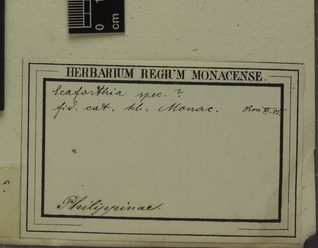 cm
HERBARIUM REGIUM MONACENSE.
Seaforthia spec. ?
fid. cat. hb. Monac.
Philippinae.